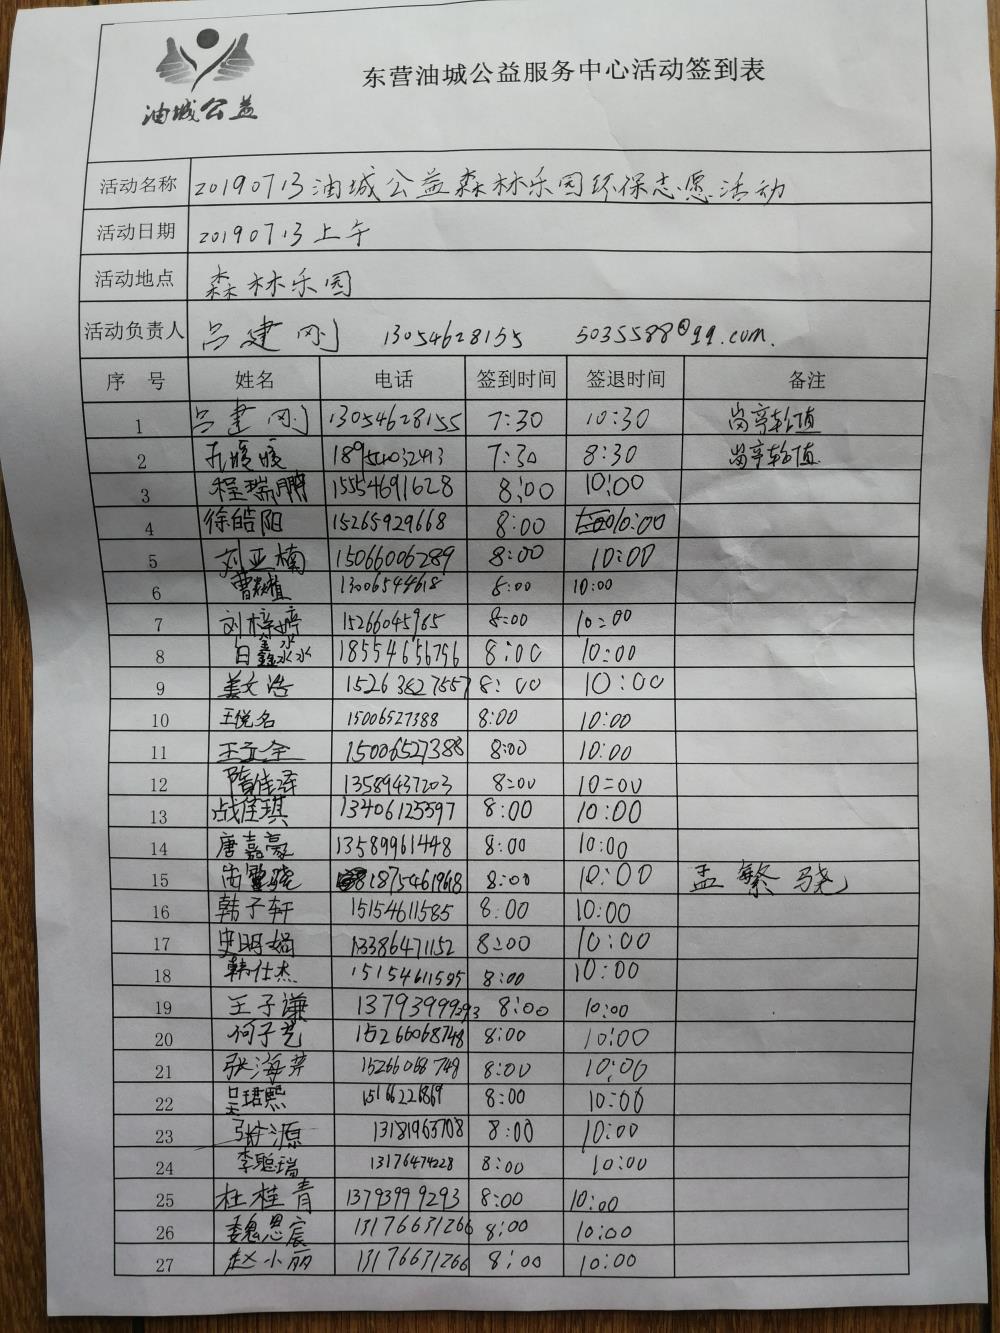 油城公益
东营油城公益服务中心活动签到表
活动名称 20190713油城公益森林乐园环保志愿活动
活动日期 20190713上午
活动地点 森林乐园
活动负责人 吕建刚 13054628155 5035588@qq.com.
序号 姓名 电话 签到时间 签退时间 备注
1 吕建刚 13054628155 7:30 10:30 岗亭轮值
2 孔媛媛 18954032413 7:30 8:30 岗亭轮值
3 程瑞鹏 15554691628 8:00 10:00
4 徐皓阳 15265929668 8:00 10:00
5 刘亚楠 15066006289 8:00 10:00
6 13006544618 8:00 10:00
7 刘梓婷 15266045965 8:00 10:00
8 白鑫淼 18554656796 8:00 10:00
9 姜文浩 15263827557 8:00 10:00
10 王悦名 15006527388 8:00 10:00
11 王立全 15006527388 8:00 10:00
12 隋佳泽 13589437203 8:00 10:00
13 战佳琪 13406125597 8:00 10:00
14 唐嘉豪 13589961448 8:00 10:00
15 18754461968 8:00 10:00 孟繁骁
16 韩子轩 15154611585 8:00 10:00
17 史明娟 13386471152 8:00 10:00
18 韩仕杰 15154611585 8:00 10:00
19 王子谦 13793999293 8:00 10:00
20 何子艺 15266068748 8:00 10:00
21 张海芹 15266068748 8:00 10:00
22 吴珺熙 15166221869 8:00 10:00
23 张源 13181963708 8:00 10:00
24 李聪瑞 13176474228 8:00 10:00
25 杜桂青 13793999293 8:00 10:00
26 魏恩宸 13176631266 8:00 10:00
27 赵小丽 13176631266 8:00 10:00